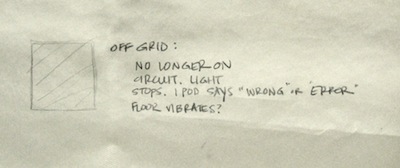 OFF GRID:
NO LONGER ON
CIRCUIT. LIGHT
STOPS. IPOD SAYS "WRONG" or "ERROR"
FLOOR VIBRATES?